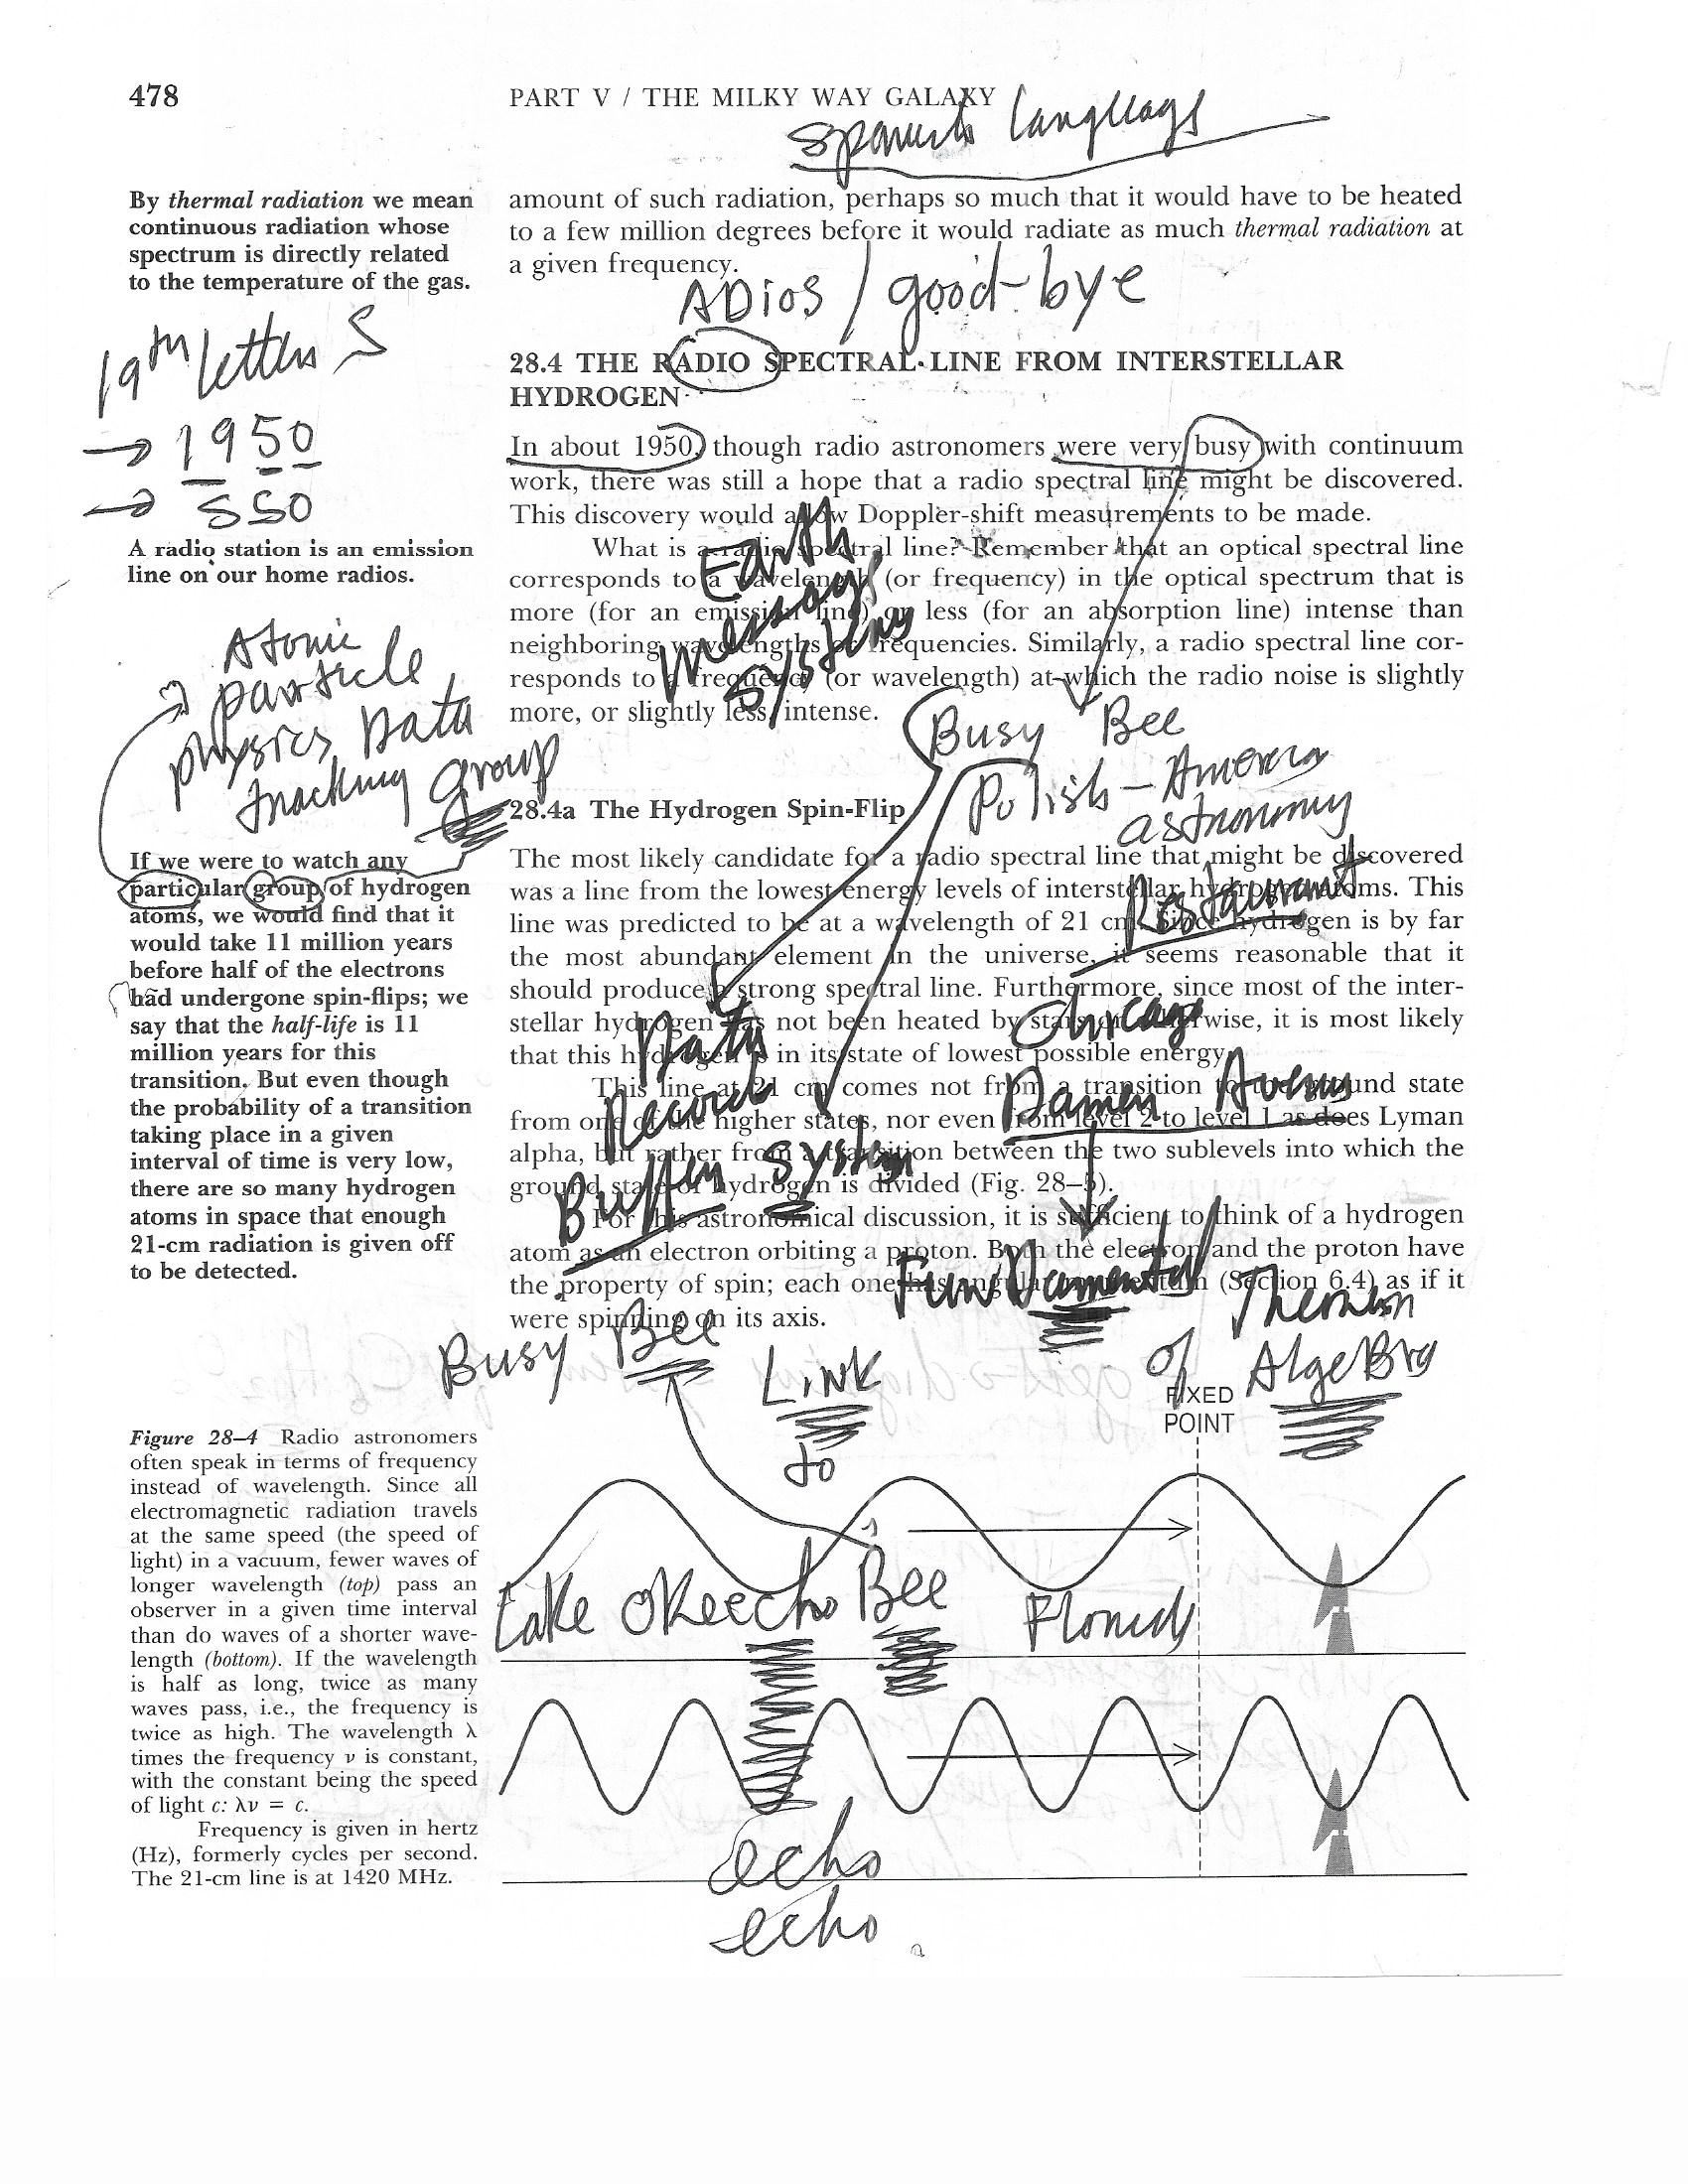 478
PART V / THE MILKY WAY GALAXY
Spanish language
By thermal radiation we mean
continuous radiation whose
spectrum is directly related
to the temperature of the gas.
amount of such radiation, perhaps so much that it would have to be heated
to a few million degrees before it would radiate as much thermal radiation at
a given frequency.
ADios / good-bye
19th letter S
→ 1950
→ SSO
28.4 THE RADIO SPECTRAL LINE FROM INTERSTELLAR
HYDROGEN
In about 1950, though radio astronomers were very busy with continuum
work, there was still a hope that a radio spectral line might be discovered.
This discovery would allow Doppler-shift measurements to be made.
A radio station is an emission
line on our home radios.
What is a radio spectral line? Remember that an optical spectral line
corresponds to a wavelength (or frequency) in the optical spectrum that is
more (for an emission line) or less (for an absorption line) intense than
neighboring wavelengths or frequencies. Similarly, a radio spectral line cor-
responds to a frequency (or wavelength) at which the radio noise is slightly
more, or slightly less, intense.
Earth
message
system
Atomic
particle
physics Data
tracking group
Busy Bee
Polish - America
astronomy
Restaurant
Chicago
Damen Avenue
28.4a The Hydrogen Spin-Flip
The most likely candidate for a radio spectral line that might be discovered
was a line from the lowest energy levels of interstellar hydrogen atoms. This
line was predicted to be at a wavelength of 21 cm. Since hydrogen is by far
the most abundant element in the universe, it seems reasonable that it
should produce a strong spectral line. Furthermore, since most of the inter-
stellar hydrogen has not been heated by stars or otherwise, it is most likely
that this hydrogen is in its state of lowest possible energy.
This line at 21 cm comes not from a transition to the ground state
from one of the higher states, nor even from level 2 to level 1 as does Lyman
alpha, but rather from a transition between the two sublevels into which the
ground state of hydrogen is divided (Fig. 28–5).
For this astronomical discussion, it is sufficient to think of a hydrogen
atom as an electron orbiting a proton. Both the electron and the proton have
the property of spin; each one has angular momentum (Section 6.4) as if it
were spinning on its axis.
If we were to watch any
particular group of hydrogen
atoms, we would find that it
would take 11 million years
before half of the electrons
had undergone spin-flips; we
say that the half-life is 11
million years for this
transition. But even though
the probability of a transition
taking place in a given
interval of time is very low,
there are so many hydrogen
atoms in space that enough
21-cm radiation is given off
to be detected.
Data
Record
Buffer System
FunDamental
Theorem
of AlgeBra
Busy Bee
Link
to
Lake OKeecho Bee Florida
echo
echo
FIXED
POINT
Figure 28–4 Radio astronomers
often speak in terms of frequency
instead of wavelength. Since all
electromagnetic radiation travels
at the same speed (the speed of
light) in a vacuum, fewer waves of
longer wavelength (top) pass an
observer in a given time interval
than do waves of a shorter wave-
length (bottom). If the wavelength
is half as long, twice as many
waves pass, i.e., the frequency is
twice as high. The wavelength λ
times the frequency ν is constant,
with the constant being the speed
of light c: λν = c.
Frequency is given in hertz
(Hz), formerly cycles per second.
The 21-cm line is at 1420 MHz.